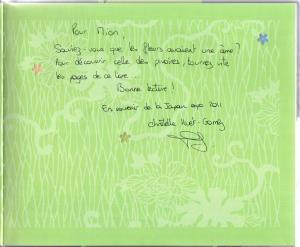 Pour Mion,
Saviez-vous que les fleurs avaient une âme ?
Pour découvrir celle des pivoines, tournez vite
les pages de ce livre...
Bonne lecture !
En souvenir de la Japan expo 2011
Christelle Huet-Gomez